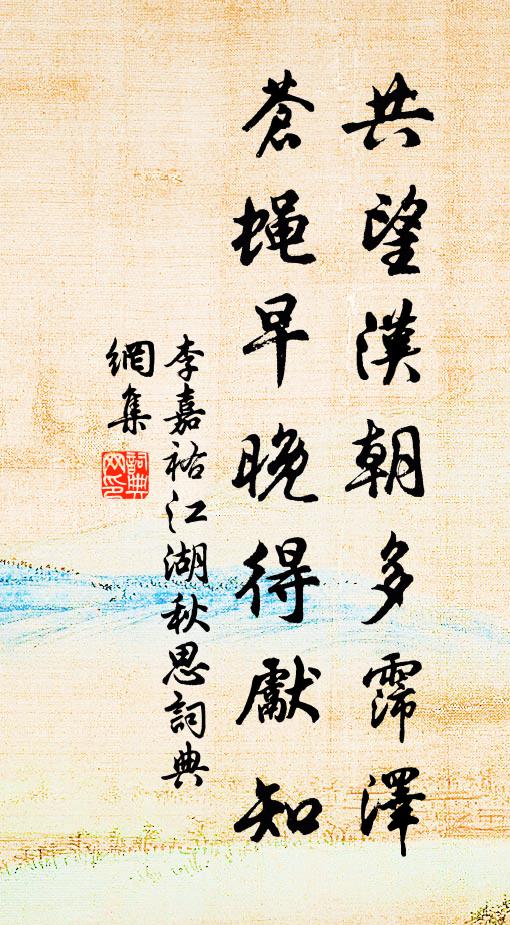 共望漢朝多霈澤
蒼蝇早晚得獻知
李嘉祐江湖秋思詞典
網集
詞典網印